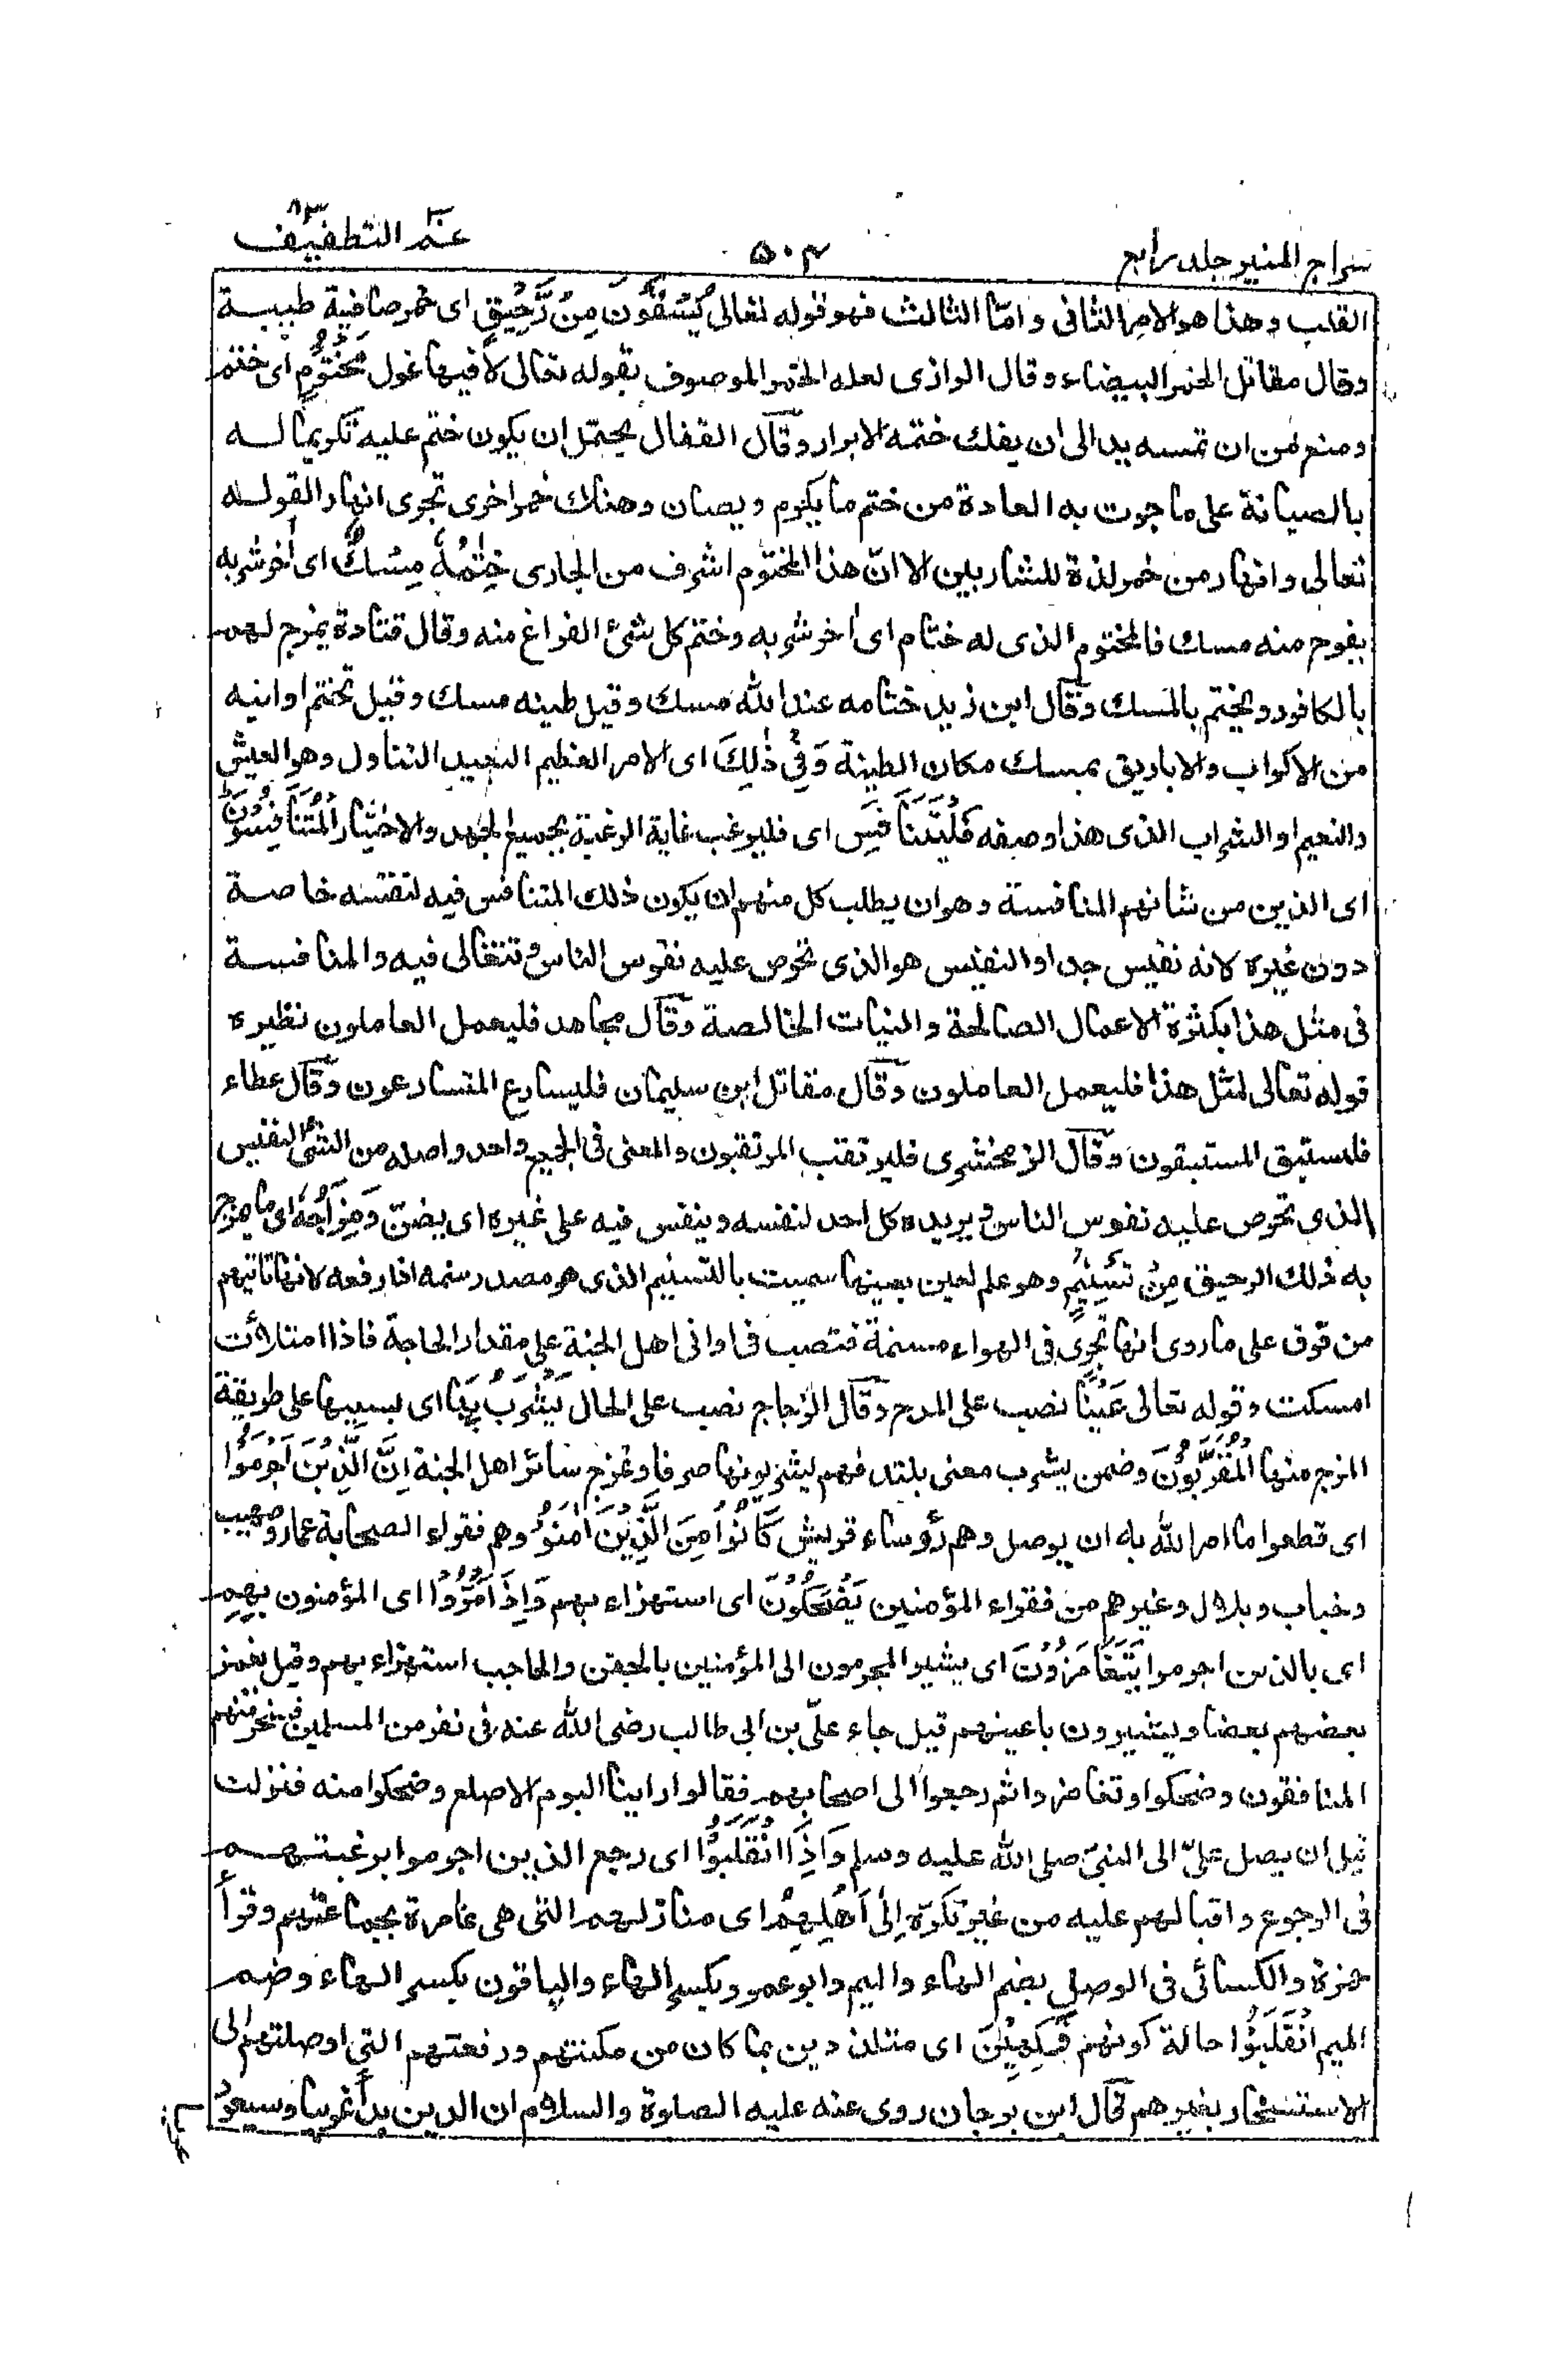 سراج المنير جلد رابع
۵۰۴
عم التطفيف ۸۳
القلب وهذا هو الامر الثانى وامّا الثالث فهو قوله تعالى يُسْقَوْنَ مِنْ رَّحِيْقٍ اى خمر صافية طيبة
وقال مقاتل الخمر البيضاء وقال الرازى لعله الخمر الموصوف بقوله تعالى لا فيها غول مَّخْتُوْمٍ اى ختم
ومنع من ان تمسه يد الى ان يفك ختمه الابرار وقال القفال يحتمل ان يكون ختم عليه تكريما له
بالصيانة على ما جرت به العادة من ختم ما يكرم ويصان وهناك خمر اخرى تجرى انهار القوله
تعالى وانهار من خمر لذة للشاربين الا انّ هذا المختوم اشرف من الجارى خِتٰمُهٗ مِسْكٌ اى اٰخر شربه
يفوح منه مسك فالمختوم الذى له ختام اى اٰخر شربه وختم كل شئ الفراغ منه وقال قتادة يمزج لهم
بالكافور ويختم بالمسك وقال ابن زيد ختامه عند الله مسك وقيل طينه مسك وقيل تختم اوانيه
من الاكواب والاباريق بمسك مكان الطينة وَفِيْ ذٰلِكَ اى الامر العظيم البعيد التناول وهو العيش
والنعيم او الشراب الذى هذا وصفه فَلْيَتَنَافَسِ اى فليرغب غاية الرغبة بجميع الجهد والاختيار الْمُتَنَافِسُوْنَ
اى الذين من شانهم المنافسة وهو ان يطلب كل منهم ان يكون ذلك المتنافس فيه لنفسه خاصة
دون غيره لانه نفيس جدا والنفيس هو الذى تحرص عليه نفوس الناس وتتغالى فيه والمنافسة
فى مثل هذا بكثرة الاعمال الصالحة والنيات الخالصة وقال مجاهد فليعمل العاملون نظيره
قوله تعالى لمثل هذا فليعمل العاملون وقال مقاتل ابن سليمان فليسارع المتسارعون وقال عطاء
فليستبق المستبقون وقال الزمخشرى فليرتقب المرتقبون والمعنى فى الجميع واحد واصله من الشئ النفيس
الذى تحرص عليه نفوس الناس ويريده كل احد لنفسه وينفس فيه على غيره اى يضنّ وَمِزَاجُهٗ اى ما مزج
به ذلك الرحيق مِنْ تَسْنِيْمٍ وهو علم لعين بعينها سميت بالتسنيم الذى هو مصدر سنمه اذا رفعه لانها تاتيهم
من فوق على ما روى انها تجرى فى الهواء مسنمة فتصب فى اوانى اهل الجنة على مقدار الحاجة فاذا امتلأت
امسكت وقوله تعالى عَيْنًا نصب على المدح وقال الزجاج نصب على الحال يَشْرَبُ بِهَا اى بسببها على طريقة
المزج منها الْمُقَرَّبُوْنَ وضمن يشرب معنى يلتذ فهم يشربونها صرفا وتمزج سائر اهل الجنة اِنَّ الَّذِيْنَ اَجْرَمُوْا
اى قطعوا ما امر الله به ان يوصل وهم رؤساء قريش كَانُوْا مِنَ الَّذِيْنَ اٰمَنُوْا وهم فقراء الصحابة عمار وصهيب
وخباب وبلال وغيرهم من فقراء المؤمنين يَضْحَكُوْنَ اى استهزاء بهم وَاِذَا مَرُّوْا اى المؤمنون بِهِمْ
اى بالذين اجرموا يَتَغَامَزُوْنَ اى يشير المجرمون الى المؤمنين بالجفن والحاجب استهزاء بهم وقيل يغمز
بعضهم بعضا ويشيرون باعينهم قيل جاء علىّ بن ابى طالب رضى الله عنه فى نفر من المسلمين فسخر منهم
المنافقون وضحكوا وتغامزوا ثم رجعوا الى اصحابهم فقالوا راينا اليوم الاصلع وضحكوا منه فنزلت
قبل ان يصل علىّ الى النبىّ صلى الله عليه وسلم وَاِذَا انْقَلَبُوْا اى رجع الذين اجرموا برغبتهم
فى الرجوع واقبالهم عليه من غير تكرّه اِلٰى اَهْلِهِمْ اى منازلهم التى هى عامرة بجماعتهم وقرأ
حمزة والكسائى فى الوصل بضم الهاء والميم وابو عمرو بكسر الهاء والباقون بكسر الهاء وضم
الميم انْقَلَبُوْا حالة كونهم فَكِهِيْنَ اى متلذذين بما كان من مكنتهم ورفعتهم التى اوصلتهم الى
الاستسخار بغيرهم قال ابن برجان روى عنه عليه الصلوة والسلام ان الدين بدأ غريبا وسيعود